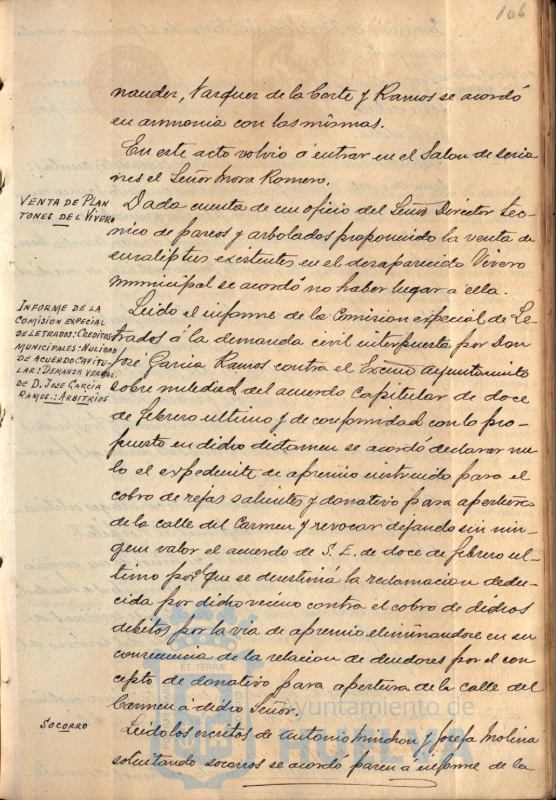 106
nander, Vazquez de la Corte y Ramos se acordó
en armonia con las mismas.
En este acto volvio á entrar en el Salon de sesio
nes el Señor Mora Romero.
VENTA DE PLAN
TONES DEL VIVERO
Dada cuenta de un oficio del Señor Director Tec
nico de paseos y arbolados proponiendo la venta de
eucaliptus existentes en el desaparecido Vivero
municipal se acordó no haber lugar a ella.
INFORME DE LA
COMISION ESPECIAL
DE LETRADOS: CREDITOS
MUNICIPALES: NULIDAD
DE ACUERDO CAPITU-
LAR: DEMANDA VERBAL
DE D. JOSE GARCIA
RAMOS.: ARBITRIOS
Leido el informe de la Comision especial de Le-
trados á la demanda civil interpuesta por Don
José Garcia Ramos contra el Excmo Ayuntamiento
sobre nulidad del acuerdo capitular de doce
de febrero ultimo y de conformidad con lo pro-
puesto en dicho dictamen se acordó declarar nu-
lo el expediente de apremio instruido para el
cobro de rejas salientes y donativo para apertura
de la calle del Carmen y revocar dejando sin nin-
gun valor el acuerdo de S. E. de doce de febrero ul-
timo por el que se desestimá la reclamacion dedu-
cida por dicho vecino contra el cobro de dichos
debitos por la via de apremio eliminandose en su
consecuencia de la relacion de deudores por el con
cepto de donativo para apertura de la calle del
Carmen a dicho Señor.
SOCORRO
Leidos los escritos de Antonio y Josefa Molina
solicitando socorros se acordó pasen á informe de la
ET TERRA
Ayuntamiento de
HUELVA